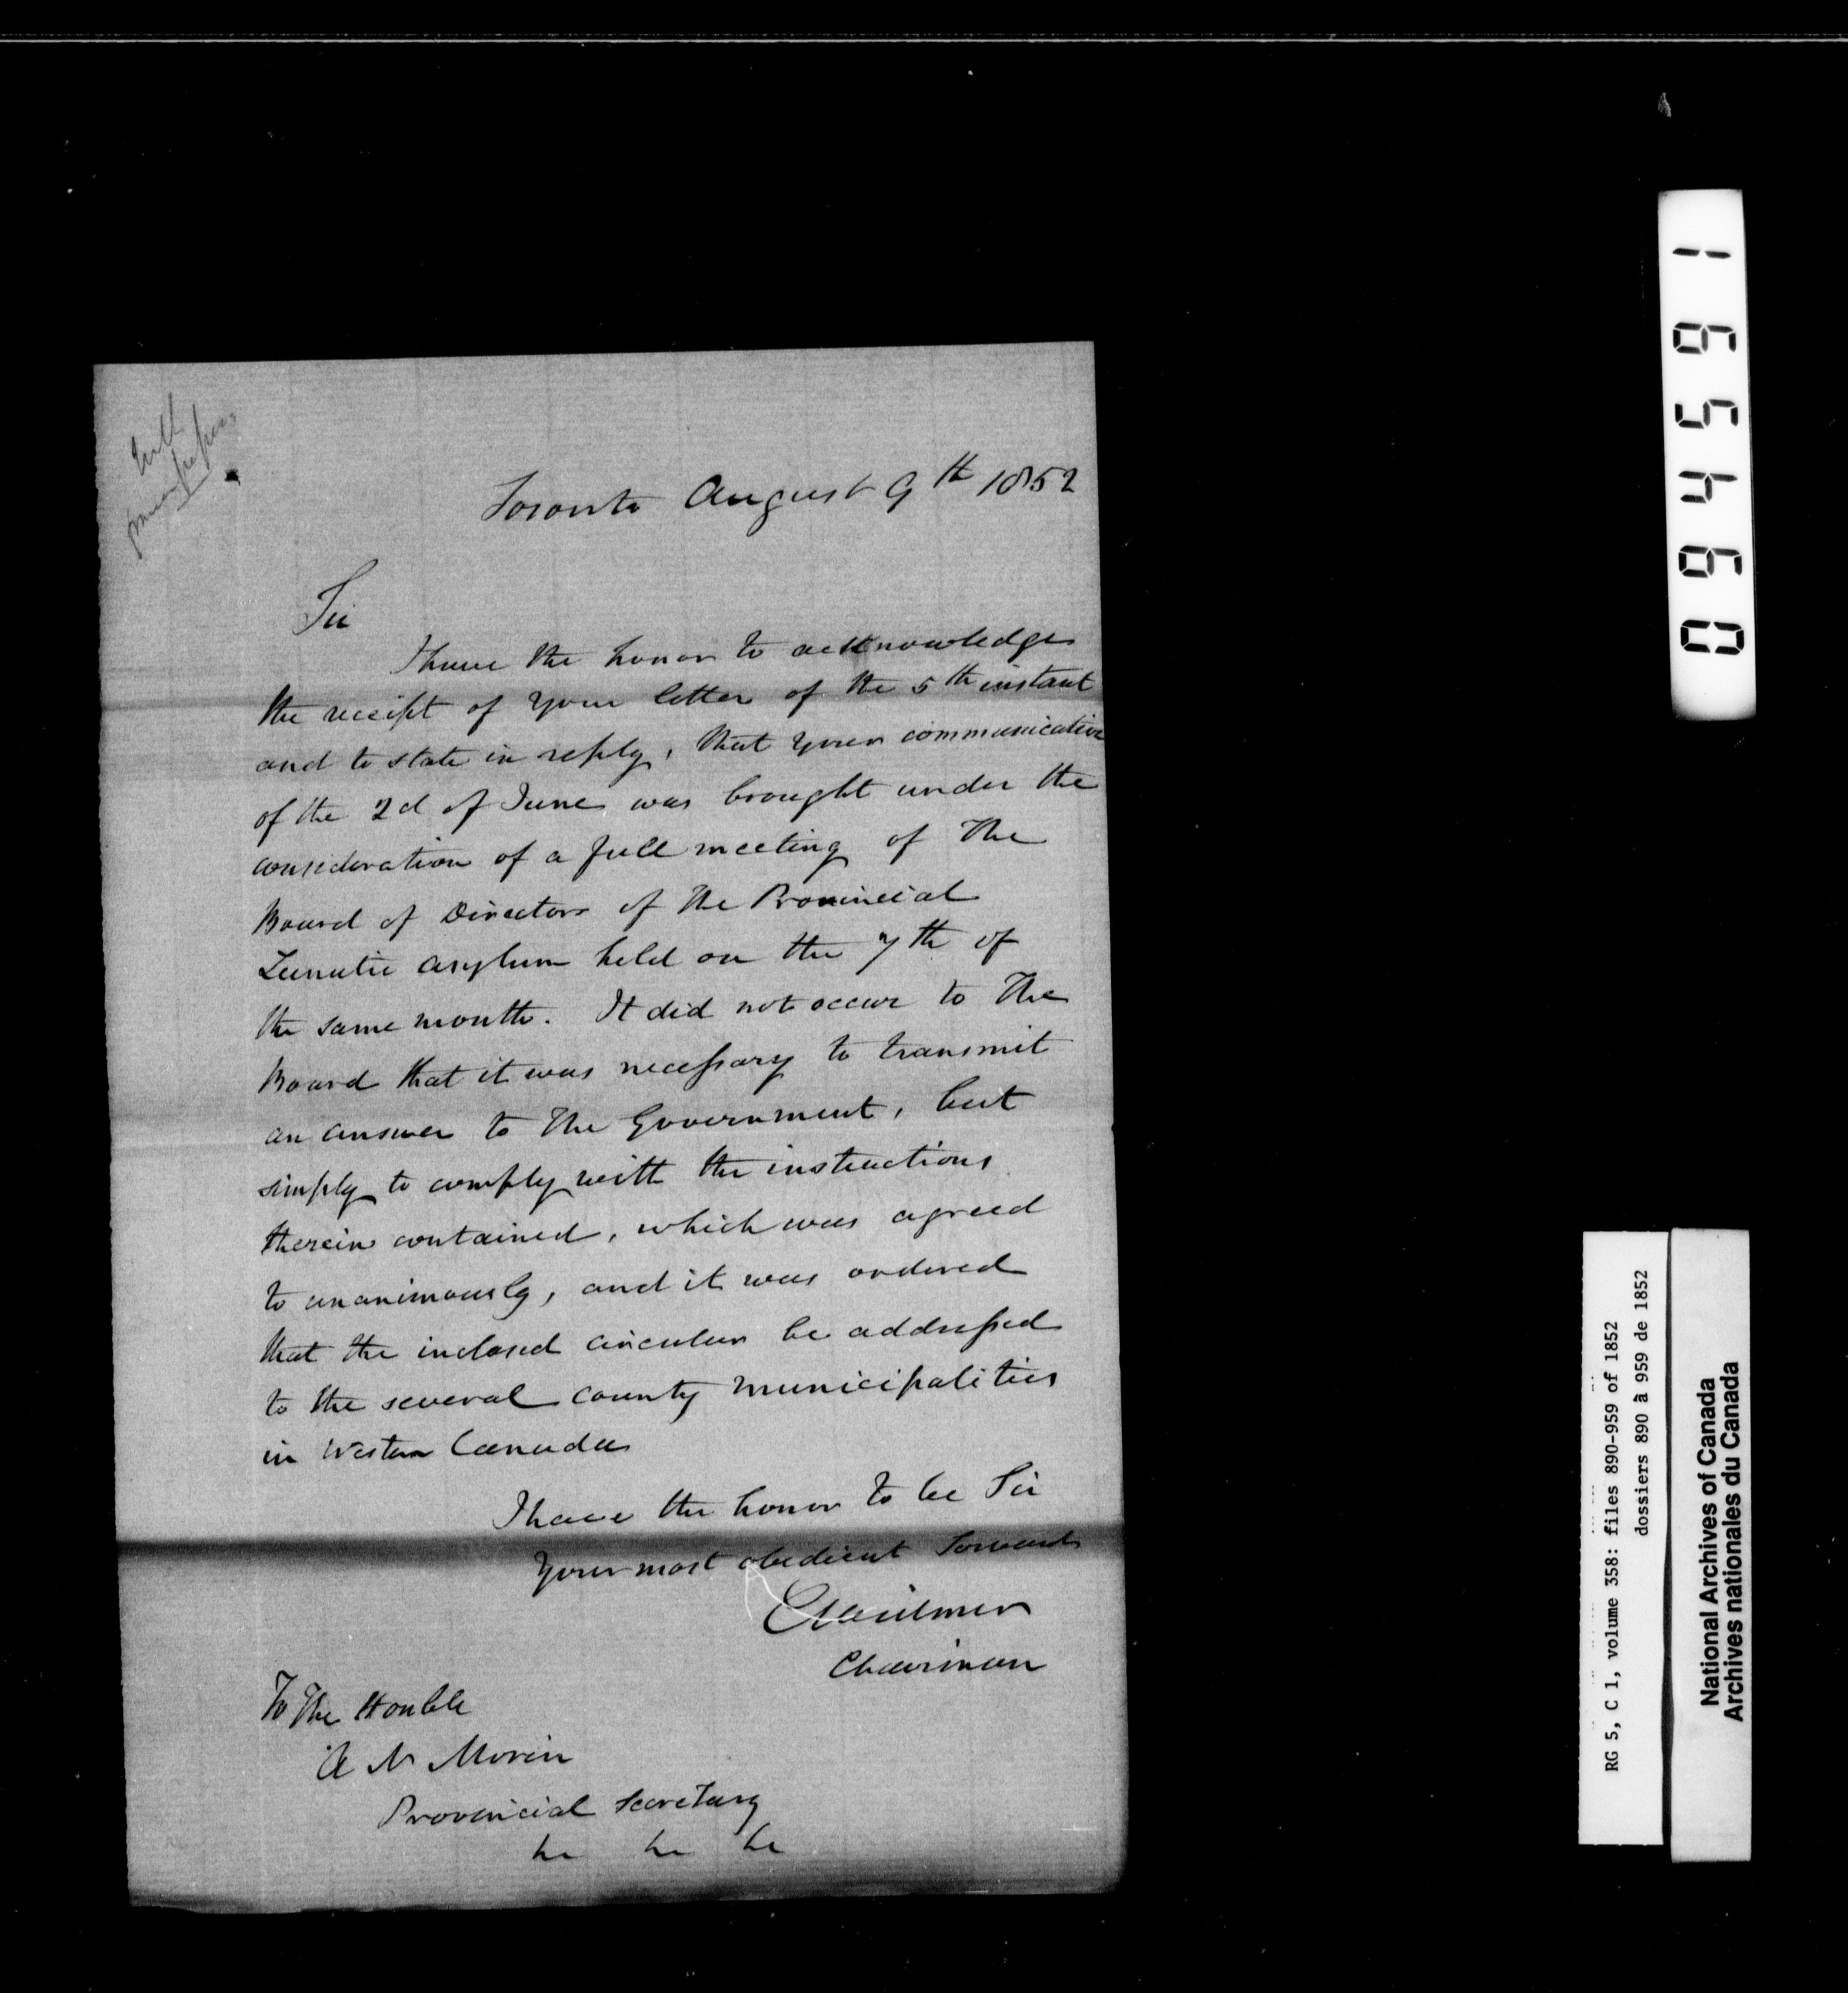 With
former papers
Toronto August 9th 1852
Sir
I have the honor to acknowledge
the receipt of your letter of the 5th instant
and to state in reply, that your communication
of the 2d of June was brought under the
consideration of a full meeting of the
Board of Directors of the Provincial
Lunatic Asylum held on the 7th of
the same month. It did not occur to the
Board that it was necessary to transmit
an answer to the Government, but
simply to comply with the instructions
therein contained, which was agreed
to unanimously, and it was ordered
that the inclosed circular be addressed
to the several county municipalities
in Western Canada
I have the honor to be Sir
Your most obedient Servant
Chairman
To The Honble
A N Morin
Provincial Secretary
&c &c &c
064591
RG 5, C 1, volume 358: files 890-959 of 1852
dossiers 890 à 959 de 1852
National Archives of Canada
Archives nationales du Canada